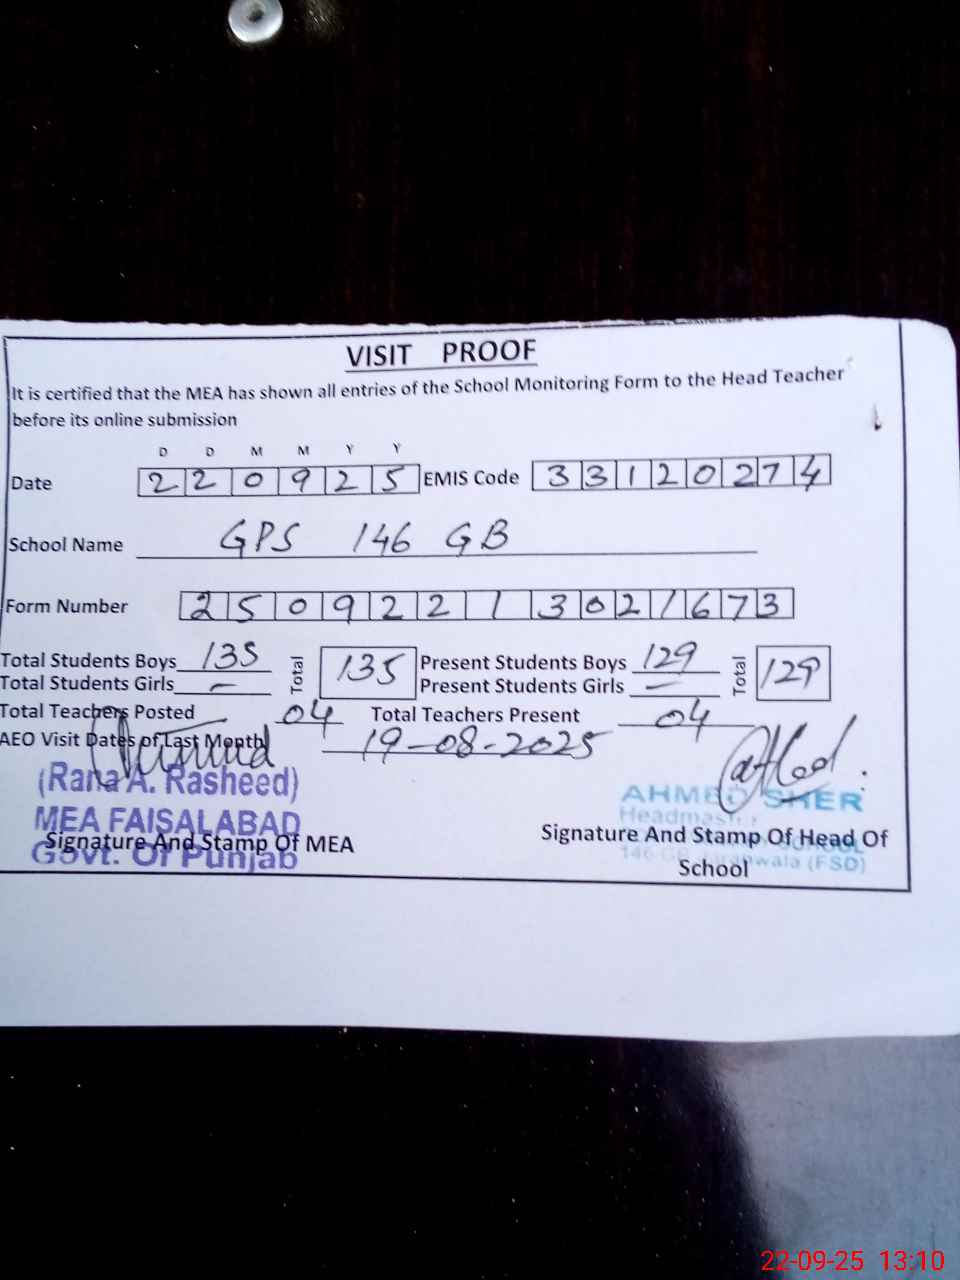 VISIT PROOF
It is certified that the MEA has shown all entries of the School Monitoring Form to the Head Teacher
before its online submission
D D M M Y Y
Date 220925 EMIS Code 33120274
School Name GPS 146 GB
Form Number 25092213021673
Total Students Boys 135 Total 135 Present Students Boys 129 Total 129
Total Students Girls – Present Students Girls –
Total Teachers Posted 04 Total Teachers Present 04
AEO Visit Dates of Last Month 19-08-2025
(Rana A. Rasheed)
MEA FAISALABAD
Govt. Of Punjab
Signature And Stamp Of MEA
AHMED SHER
Headmaster
SCHOOL
146 GB (FSD)
Signature And Stamp Of Head Of
School
22-09-25 13:10